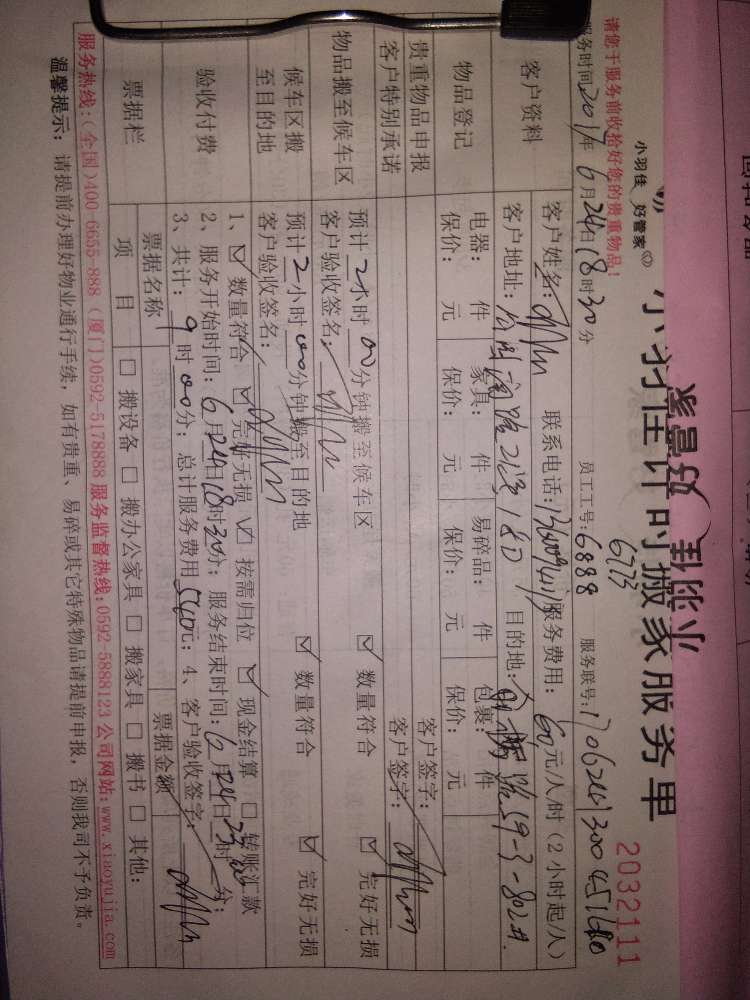 小羽佳 好管家
小羽佳计时搬家服务单
2032111
请您于服务前收拾好您的贵重物品！
6773
服务时间2017年6月24日18时30分 员工工号:6888 服务联号:
客户资料
客户姓名: 联系电话: 服务费用:60元/人/时(2小时起/人)
客户地址: 目的地:
物品登记
电器: 件 家具: 件 易碎品: 件 包裹: 件
保价: 元 保价: 元 保价: 元 保价: 元
贵重物品申报 客户签字:
客户特别承诺 客户签字:
物品搬至候车区
预计2小时00分钟搬至候车区 ☑ 数量符合 ☑ 完好无损
客户验收签名:
候车区搬至目的地
预计2小时00分钟搬至目的地 ☑ 数量符合 ☑ 完好无损
客户验收签名:
验收付费
1、☑ 数量符合 ☑ 完好无损 ☑ 按需归位 ☑ 现金结算 □ 转账汇款
2、服务开始时间:6月24日18时30分; 服务结束时间:6月24日23时 分;
3、共计:9时00分; 总计服务费用540元; 4、客户验收签字:
票据栏
票据名称 票据金额
项目 □ 搬设备 □ 搬办公家具 □ 搬家具 □ 搬书 □ 其他:
服务热线:(全国)400-6655-888 (厦门)0592-5178888 服务监督热线:0592-5888123 公司网站:www.xiaoyujia.com
温馨提示: 请提前办理好物业通行手续, 如有贵重、易碎或其它特殊物品请提前申报, 否则我司不予负责。